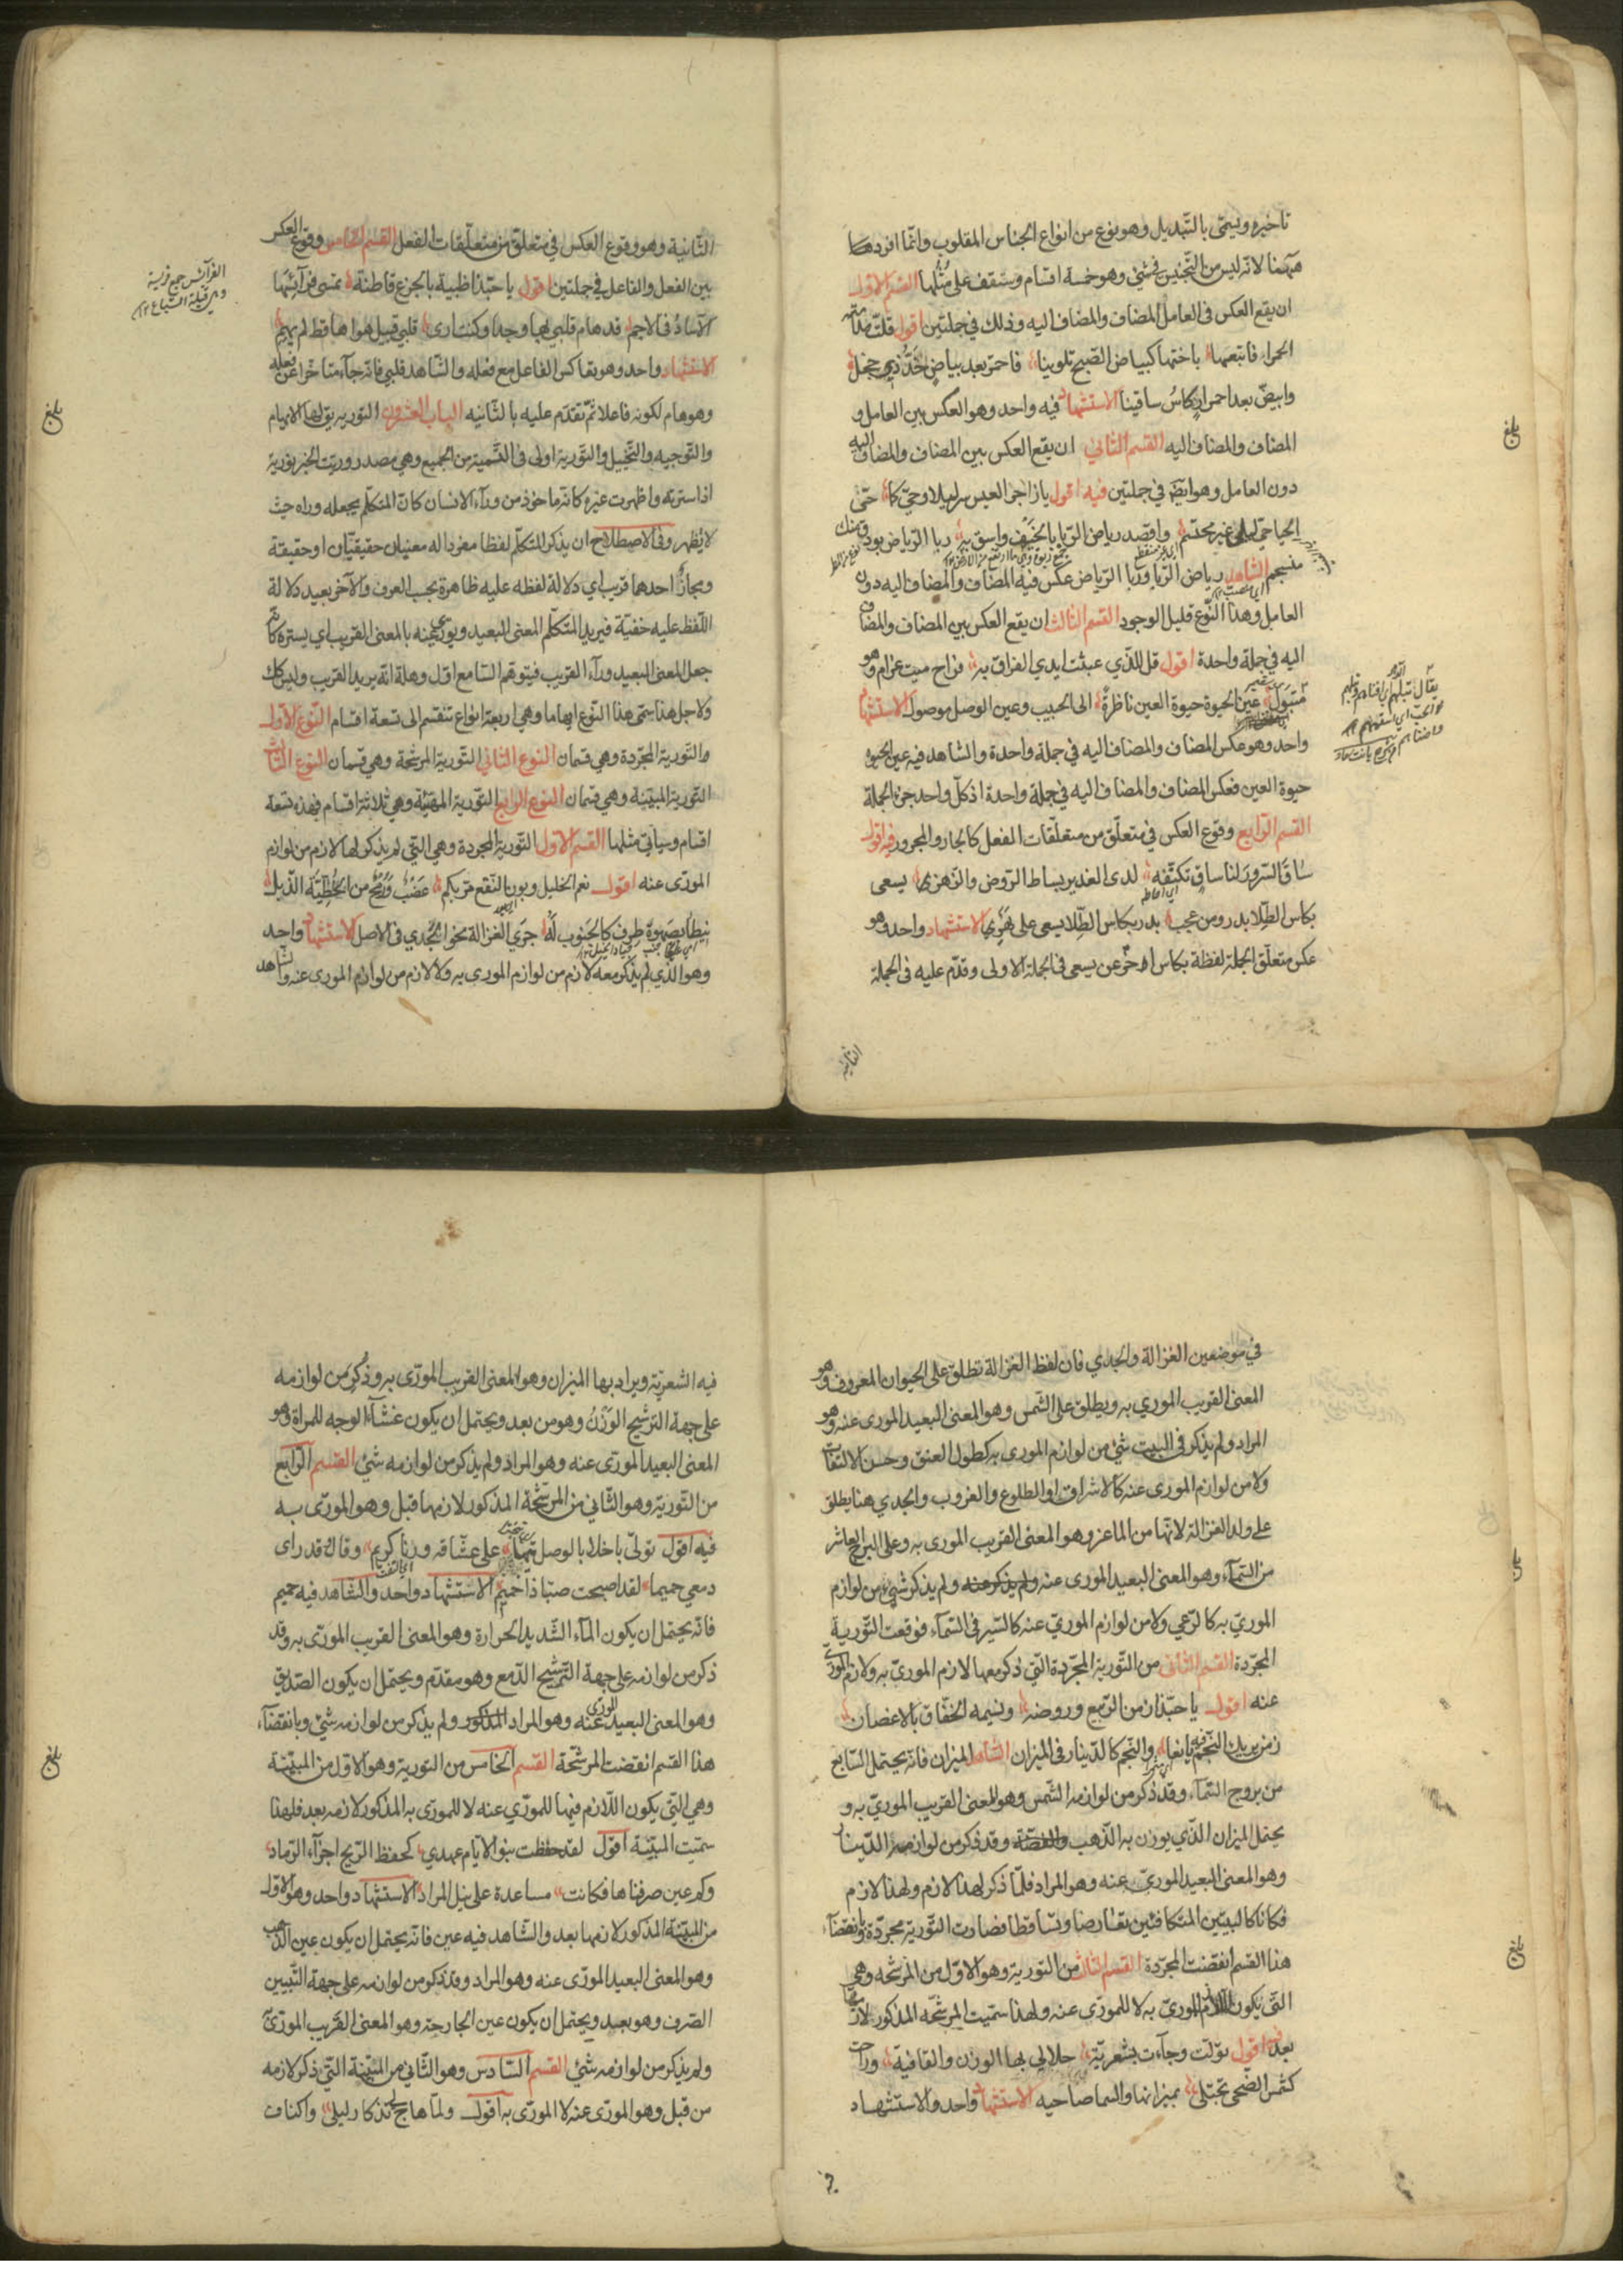 تاخيره ويسمّى بالتّبديل وهو نوع من انواع الجناس المقلوب وانّما افردها
ههنا لانّه ليس من التّجنيس في شئ وهو خمسة اقسام وستقف على مُثُلها القسم الاوّل
ان يقع العكس في العامل المضاف والمضاف اليه وذلك في جملتين اقول قلت
الحمراء فاتبعها باختها كبياض الصّبح تلوينا فاحمرّ بعد بياضٍ خدُّ ذي خجل
وابيضّ بعد احمرارٍ كاسُ ساقينا الاستشهاد فيه واحد وهو العكس بين العامل و
المضاف والمضاف اليه القسم الثّاني ان يقع العكس بين المضاف والمضاف اليه
دون العامل وهو ايضا في جملتين فيه اقول يا زاجر العيس سر ليلا وحيّ كما حتّى
الحيا حيّ ليلى غير محتشم واقصد رياض الرّبا بالخيف واسق به ربا الرّياض بودق منك
منسجم الشّاهد رياض الرّبا وربا الرّياض عكس فيه المضاف والمضاف اليه دون
العامل وهذا النّوع قليل الوجود القسم الثّالث ان يقع العكس بين المضاف والمضاف
اليه في جملة واحدة اقول قل للذّي عبثت ايدي الفراق به فراح ميت غرام وهو
متبول عين الحيوة حيوة العين ناظرةٌ الى الحبيب وعين الوصل موصول الاستشهاد
واحد وهو عكس المضاف والمضاف اليه في جملة واحدة والشاهد فيه عين الحيوة
حيوة العين فعكس المضاف والمضاف اليه في جملة واحدة اذ كلّ واحد جزء الجملة
القسم الرّابع وقوع العكس في متعلّق من متعلّقات الفعل كالجار والمجرور فيه اقول
ساق السّرورَ لنا ساقٍ تكنّفه لدى الغدير بساط الرّوض والزّهر يسعى
بكاس الطّلا بدر ومن عجب بدر بكاس الطّلا يسعى على الاستشهاد واحد وهو
عكس متعلّق الجملة لفظة بكاس اخّر عن يسعى في الجملة الاولى وقدّم عليه في الجملة
الثانية
بلغ
الثّانية وهو وقوع العكس في متعلّق من متعلّقات الفعل القسم الخامس وقوع العكس
بين الفعل والفاعل في جملتين اقول يا حبّذا ظبية بالجزع قاطنة تمسى فرائسُها
الآسادُ في الاجم قد هام قلبي بها وجدا وكنت ارى قلبي قبيل هواها قط لم يهم
الاستشهاد واحد وهو بعاكس الفاعل مع فعله والشّاهد قلبي فانّه جاء متاخّرا عن فعله
وهو هام لكونه فاعلا ثمّ تقدّم عليه بالثّانيه الباب العشرون التّوريه يق لها الايهام
والتّوجيه والتّخييل والتّورية اولى في التّسمية من الجميع وهي مصدر ورّيت الخبر تورية
اذا سترته واظهرت غيره كانّه ماخوذ من ورآء الانسان كانّ المتكلّم يجعله وراه حيث
لا يظهر وفي الاصطلاح ان يذكر المتكلّم لفظا مفردا له معنيان حقيقيّان او حقيقة
ومجازٌ احدهما قريب اي دلالة لفظه عليه ظاهرة بحسب العرف والآخر بعيد دلالة
اللّفظ عليه خفيّة فيريد المتكلّم المعنى البعيد ويورّي عنه بالمعنى القريب اي يستره كانّه
جعل المعنى البعيد ورآء القريب فيتوهّم السّامع اوّل وهلة انّه يريد القريب وليس كك
ولاجل هذا سمّى هذا النّوع ايهاما وهي اربعة انواع تنقسم الى تسعة اقسام النّوع الاوّل
والتّورية المجرّدة وهي قسمان النّوع الثّاني التّورية المرشّحة وهي قسمان النّوع الثّالث
التّورية المبيّنة وهي قسمان النّوع الرّابع التّورية المهيّئة وهي ثلاثة اقسام فهذه تسعة
اقسام وسيأتي مثلها القسم الاوّل التّورية المجردة وهي التّي لم يذكر لها لازم من لوازم
المورّى عنه اقول نعم الخليل ويون النّقع عضب ورمح من الخطيّة الذّبل
بصهوة طرف كالجنوب له جرى الغزالة نحو الجدي في الاصل الاستشهاد واحد
وهو الّذي لم يذكر معه لازم من لوازم المورى به ولا لازم من لوازم المورى عنه والشاهد
بلغ
في موضعين الغزالة والجدي فان لفظ الغزالة تطلق على الحيوان المعروف وهو
المعنى القريب الموري به ويطلق على الشّمس وهو المعنى البعيد المورى عنه وهو
المراد ولم يذكر في البيت شئ من لوازم المورى به كطول العنق وحسن الالتفات
ولا من لوازم المورى عنه كالاشراق او الطلوع والغروب والجدي هنا يطلق
على ولد الغزالة لانّها من الماعز وهو المعنى القريب المورى به وعلى البرج العاشر
من السّمآء وهو المعنى البعيد المورى عنه ولم يذكر شئ من لوازم
الموريّ به كالرّعي ولا من لوازم الموريّ عنه كالسّير في السّمآء فوقعت التّورية
المجرّدة القسم الثّاني من التّورية المجرّدة التّي ذكر معها لازم الموريّ به ولازم المورّي
عنه اقول يا حبّذا زمن الرّبيع وروضه ونسيمه الخفّاق بالاغصان
زمن يريك النّجم فيه يانعا والنّجم كالدّينار في الميزان الشّاهد الميزان فانّه يحتمل السّابع
من بروج السّمآء وقد ذكر من لوازمه الشّمس وهو المعنى القريب الموريّ به و
يحتمل الميزان الّذي يوزن به الذّهب والفضّة وقد ذكر من لوازمه الدّينار
وهو المعنى البعيد الموريّ عنه وهو المراد فلمّا ذكر لهذا لازم ولهذا لازم
فكانا كالبيّتين المتكافئتين تعارضا وتساقطا فصارت التّورية مجرّدة وبانقضآء
هذا القسم انقضت المجرّدة القسم الثّالث من التّورية وهو الاوّل من المرشّحه وهي
التّي يكون اللازم للموريّ به لا للمورّى عنه ولهذا سمّيت المرشّحه المذكور لازمها
بعد اقول تولّت وجآءت بشعريّة حلا لي بها الوزن والقافية وراحت
كشمس الضّحى تجتلى بميزانها والسما صاحيه الاستشهاد واحد والاستشهاد
بلغ
فيه الشعريّة ويراد بها الميزان وهو المعنى القريب المورّى به وذكر من لوازمه
على جهة التّرشيح الوَزْنُ وهو من بعد ويحتمل ان يكون غشآء الوجه للمراة وهو
المعنى البعيد المورّى عنه وهو المراد ولم يذكر من لوازمه شئ القسم الرّابع
من التّورية وهو الثّاني من المرشّحة المذكور لازمها قبل وهو المورّى به
فيه اقول تولّى باخلا بالوصل تيها على عشّاقه ورنا كريم وقال قد راى
دمعي حميما لقد اصبحت صبّا ذا حميم الاستشهاد واحد والشّاهد فيه حميم
فانّه يحتمل ان يكون المآء الشّديد الحرارة وهو المعنى القريب المورّى به وقد
ذكر من لوازمه على جهة التّرشيح الدّمع وهو مقدّم ويحتمل ان يكون الصّديق
وهو المعنى البعيد المورّى عنه وهو المراد المذكور ولم يذكر من لوازمه شئ وبانقضآء
هذا القسم انقضت المرشّحة القسم الخامس من التّورية وهو الاوّل من المبيّنة
وهي التّي يكون اللّازم فيها للمورّي عنه لا للمورّى به المذكور لازمه بعد فلهذا
سمّيت المبيّنة اقول لقد حفظت بنو الايّام عهدي كحفظ الرّيح اجزآء الرّماد
وكم عين صرفناها فكانت مساعدة على نيل المراد الاستشهاد واحد وهو الاوّل
من المبيّنة المذكور لازمها بعد والشّاهد فيه عين فانّه يحتمل ان يكون عين الذّهب
وهو المعنى البعيد المورّى عنه وهو المراد وقد ذكر من لوازمه على جهة التّبيين
الصّرف وهو بعيد ويحتمل ان يكون عين الجارحة وهو المعنى القريب المورّى
ولم يذكر من لوازمه شئ القسم السّادس وهو الثّاني من المبيّنة التّي ذكر لازمه
من قبل وهو المورّى عنه لا المورّى به اقول ولمّا هاج لي تذكار ليلى واكناف
بلغ